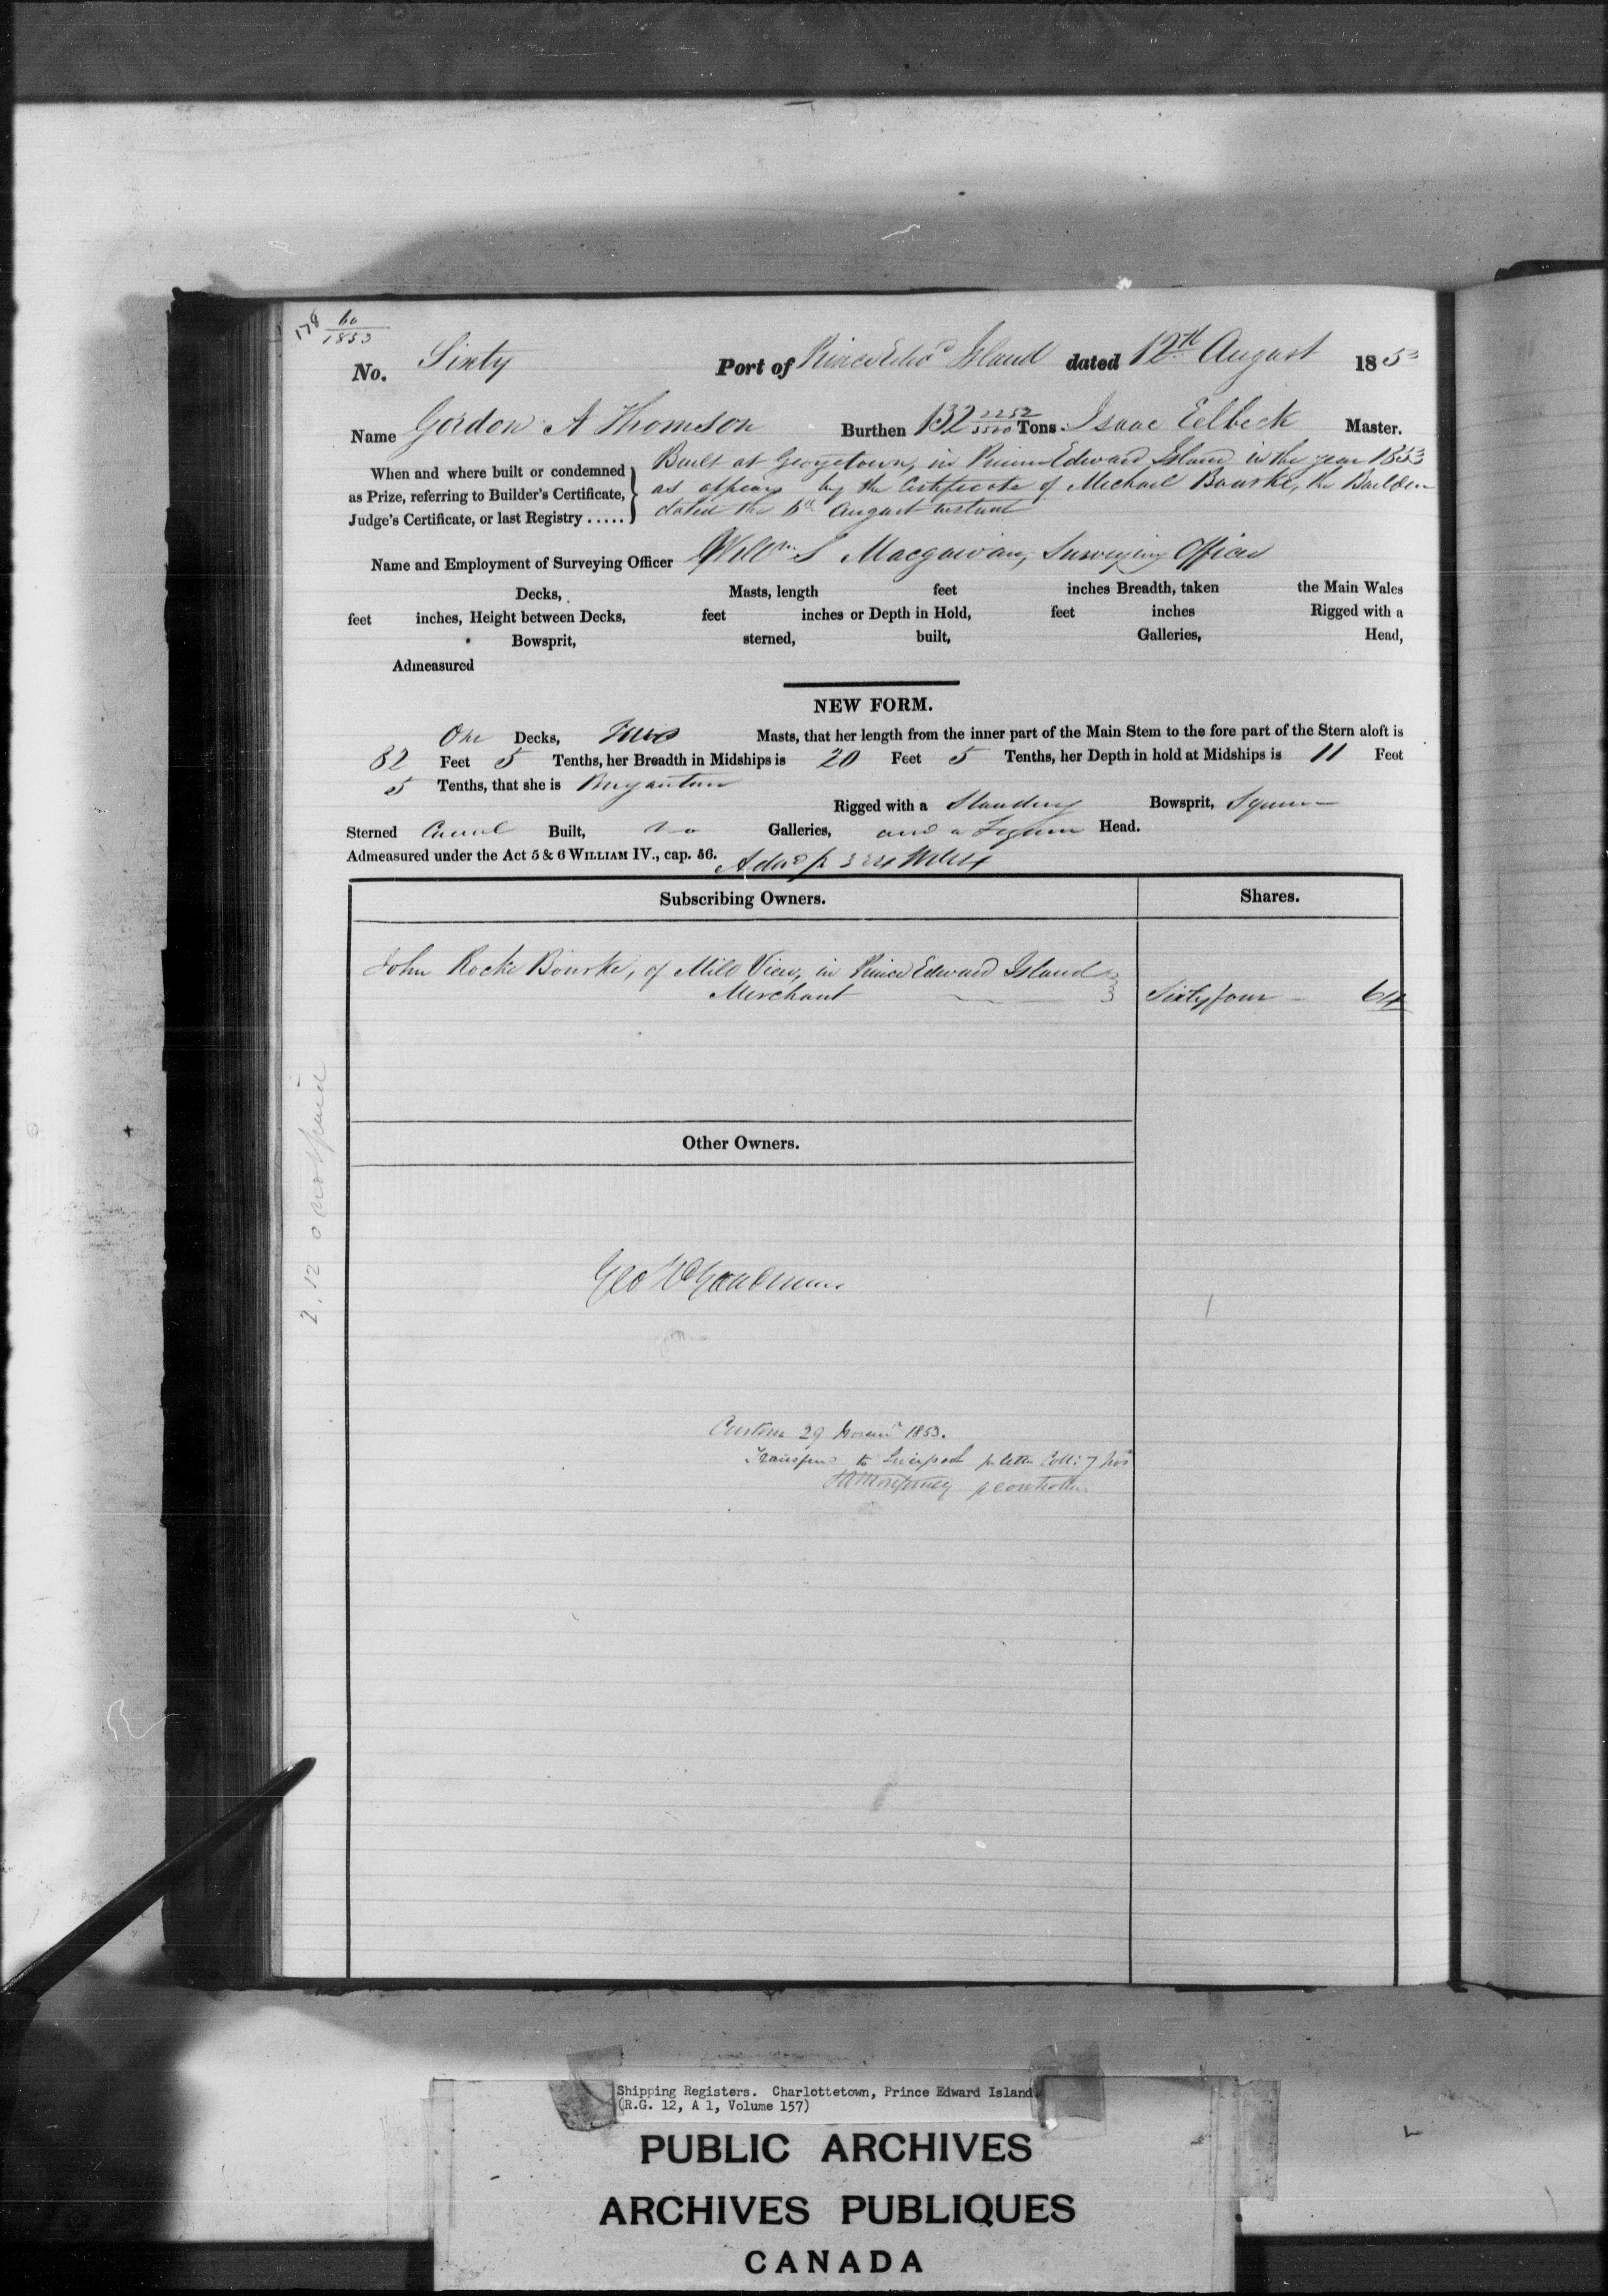 178 60/1853
No. Sixty Port of Prince Edwd Island dated 12th August 1853
Name Gordon A Thomson Burthen 132 2252/3500 Tons Isaac Eelbeck Master.
When and where built or condemned as Prize, referring to Builder's Certificate, Judge's Certificate, or last Registry .....
Built at Georgetown, in Prince Edward Island in the year 1853
as appears by the Certificate of Michael Bourke, the Builder
dated the August Instant
Name and Employment of Surveying Officer Willm S Macgowan, Surveying Officer
Decks, Masts, length feet inches Breadth, taken the Main Wales
feet inches, Height between Decks, feet inches or Depth in Hold, feet inches Rigged with a
Bowsprit, sterned, built, Galleries, Head,
Admeasured
NEW FORM.
One Decks, Two Masts, that her length from the inner part of the Main Stem to the fore part of the Stern aloft is
82 Feet 5 Tenths, her Breadth in Midships is 20 Feet 5 Tenths, her Depth in hold at Midships is 11 Feet
5 Tenths, that she is Brigantine
Rigged with a Standing Bowsprit, Square
Sterned Carvel Built, No Galleries, and a Figure Head.
Admeasured under the Act 5 & 6 WILLIAM IV., cap. 56.
Subscribing Owners. Shares.
John Roche Bourke, of Mill View, in Prince Edward Island
Merchant Sixty four 64
Other Owners.
2. 12 0 not paid
Custom 29 1853.
Transferred to Liverpool pr letter Coll: 7 Novr
p controller
Shipping Registers. Charlottetown, Prince Edward Island.
(R.G. 12, A 1, Volume 157)
PUBLIC ARCHIVES
ARCHIVES PUBLIQUES
CANADA